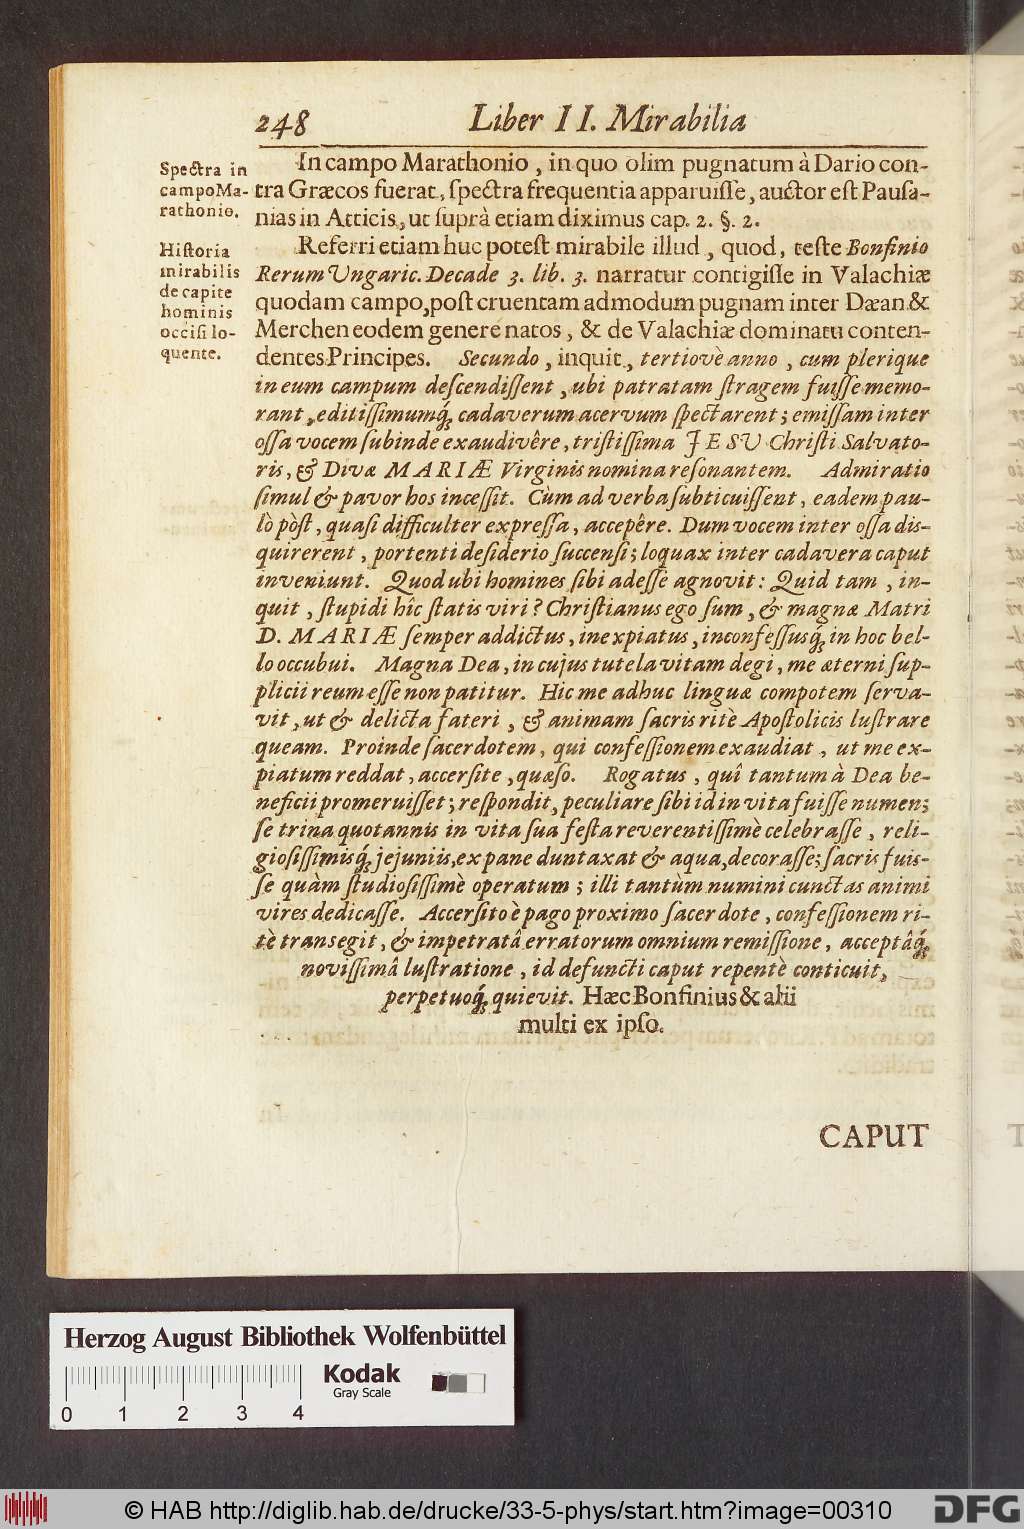 248 Liber II. Mirabilia
Spectra in
campo Ma-
rathonio.
In campo Marathonio, in quo olim pugnatum à Dario con-
tra Græcos fuerat, ſpectra frequentia apparuiſſe, auctor eſt Pauſa-
nias in Atticis, ut ſuprà etiam diximus cap. 2. §. 2.
Hiſtoria
mirabilis
de capite
hominis
occiſi lo-
quente.
Referri etiam huc poteſt mirabile illud, quod, teſte Bonfinio
Rerum Ungaric. Decade 3. lib. 3. narratur contigiſſe in Valachiæ
quodam campo, poſt cruentam admodum pugnam inter Dæan &
Merchen eodem genere natos, & de Valachiæ dominatu conten-
dentes Principes. Secundo, inquit, tertiovè anno, cum plerique
in eum campum deſcendiſſent, ubi patratam ſtragem fuiſſe memo-
rant, editiſſimumq́; cadaverum acervum ſpectarent; emiſſam inter
oſſa vocem ſubinde exaudivêre, triſtiſſima JESU Chriſti Salvato-
ris, & Divæ MARIÆ Virginis nomina reſonantem. Admiratio
ſimul & pavor hos inceſſit. Cùm ad verba ſubticuiſſent, eadem pau-
lò pòſt, quaſi difficulter expreſſa, accepêre. Dum vocem inter oſſa dis-
quirerent, portenti deſiderio ſuccenſi; loquax inter cadavera caput
inveniunt. Quod ubi homines ſibi adeſſe agnovit: Quid tam, in-
quit, ſtupidi hîc ſtatis viri? Chriſtianus ego ſum, & magnæ Matri
D. MARIÆ ſemper addictus, inexpiatus, inconfeſſusq́; in hoc bel-
lo occubui. Magna Dea, in cujus tutela vitam degi, me æterni ſup-
plicii reum eſſe non patitur. Hic me adhuc linguæ compotem ſerva-
vit, ut & delicta fateri, & animam ſacris ritè Apoſtolicis luſtrare
queam. Proinde ſacerdotem, qui confeſſionem exaudiat, ut me ex-
piatum reddat, accerſite, quæſo. Rogatus, quî tantum à Dea be-
neficii promeruiſſet; reſpondit, peculiare ſibi id in vita fuiſſe numen;
ſe trina quotannis in vita ſua feſta reverentiſſimè celebraſſe, reli-
gioſiſſimisq́; jejuniis, ex pane duntaxat & aqua, decoraſſe; ſacris fuis-
ſe quàm ſtudioſiſſimè operatum; illi tantùm numini cunctas animi
vires dedicaſſe. Accerſito è pago proximo ſacerdote, confeſſionem ri-
tè transegit, & impetratâ erratorum omnium remiſſione, acceptâq́;
noviſſimâ luſtratione, id defuncti caput repentè conticuit,
perpetuoq́; quievit. Hæc Bonfinius & alii
multi ex ipſo.
CAPUT
Herzog August Bibliothek Wolfenbüttel
Kodak
Gray Scale
0 1 2 3 4
© HAB http://diglib.hab.de/drucke/33-5-phys/start.htm?image=00310
DFG